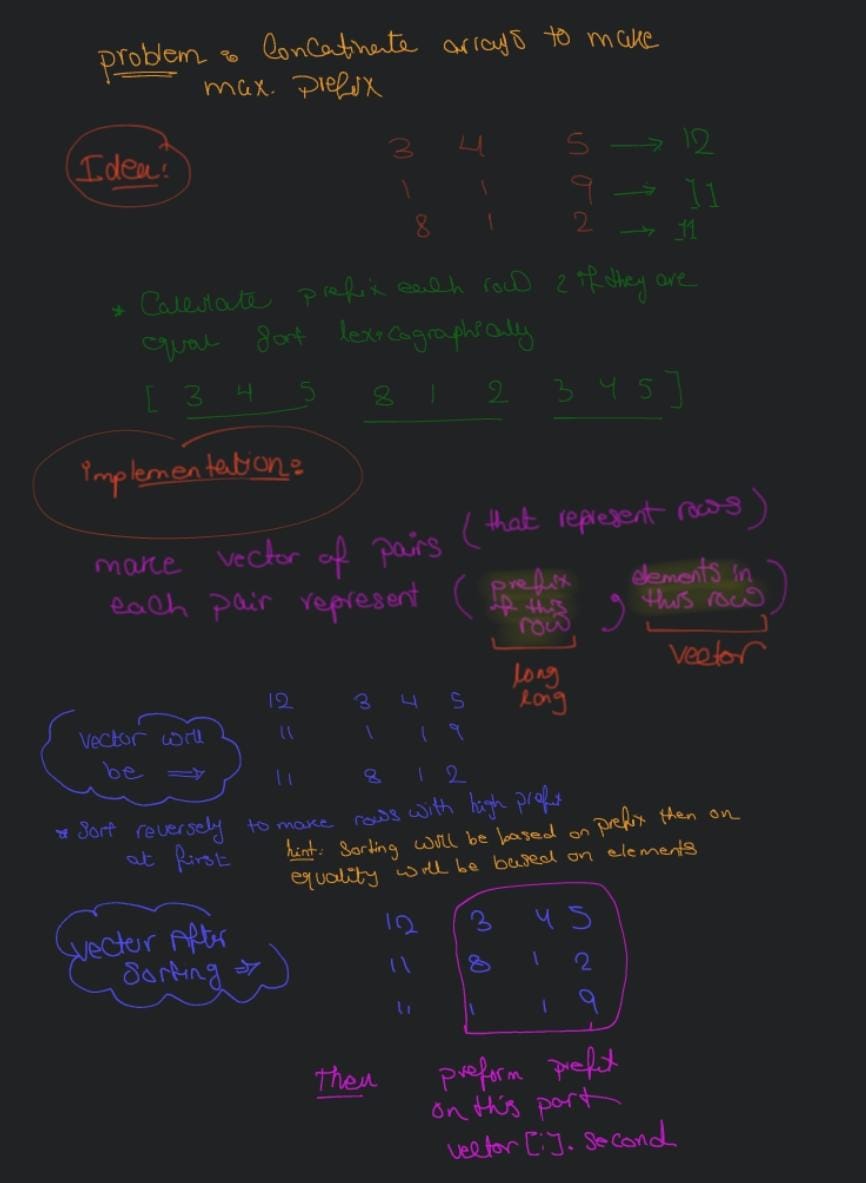 problem : Concatinate arrays to make
max. prefix
Idea:
3 4 5 → 12
1 1 9 → 11
8 1 2 → 11
* Calculate prefix each row & if they are
equal sort lexicographically
[ 3 4 5 8 1 2 3 4 5 ]
implementation:
make vector of pairs (that represent rows)
each pair represent ( prefix of this row , elements in this row )
long long
vector
vector will be ⇒
12 3 4 5
11 1 1 9
11 8 1 2
* Sort reversely to make rows with high prefix
at first
hint: Sorting will be based on prefix then on
equality will be based on elements
Vector After Sorting ⇒
12 3 4 5
11 8 1 2
11 1 1 9
Then preform prefix
on this part
vector[i].second